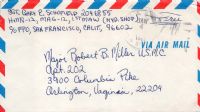 SGT. GARY E. SCHOFIELD 2048855
H&MS-12, MAG-12, 1ST MAW (HYD. SHOP)
90 FPO, SAN FRANCISCO, CALIF. 96602
VIA AIR MAIL
Major Robert B. Miller U.S.M.C.
Apt. 202
3400 Columbia Pike
Arlington, Virginia, 22204